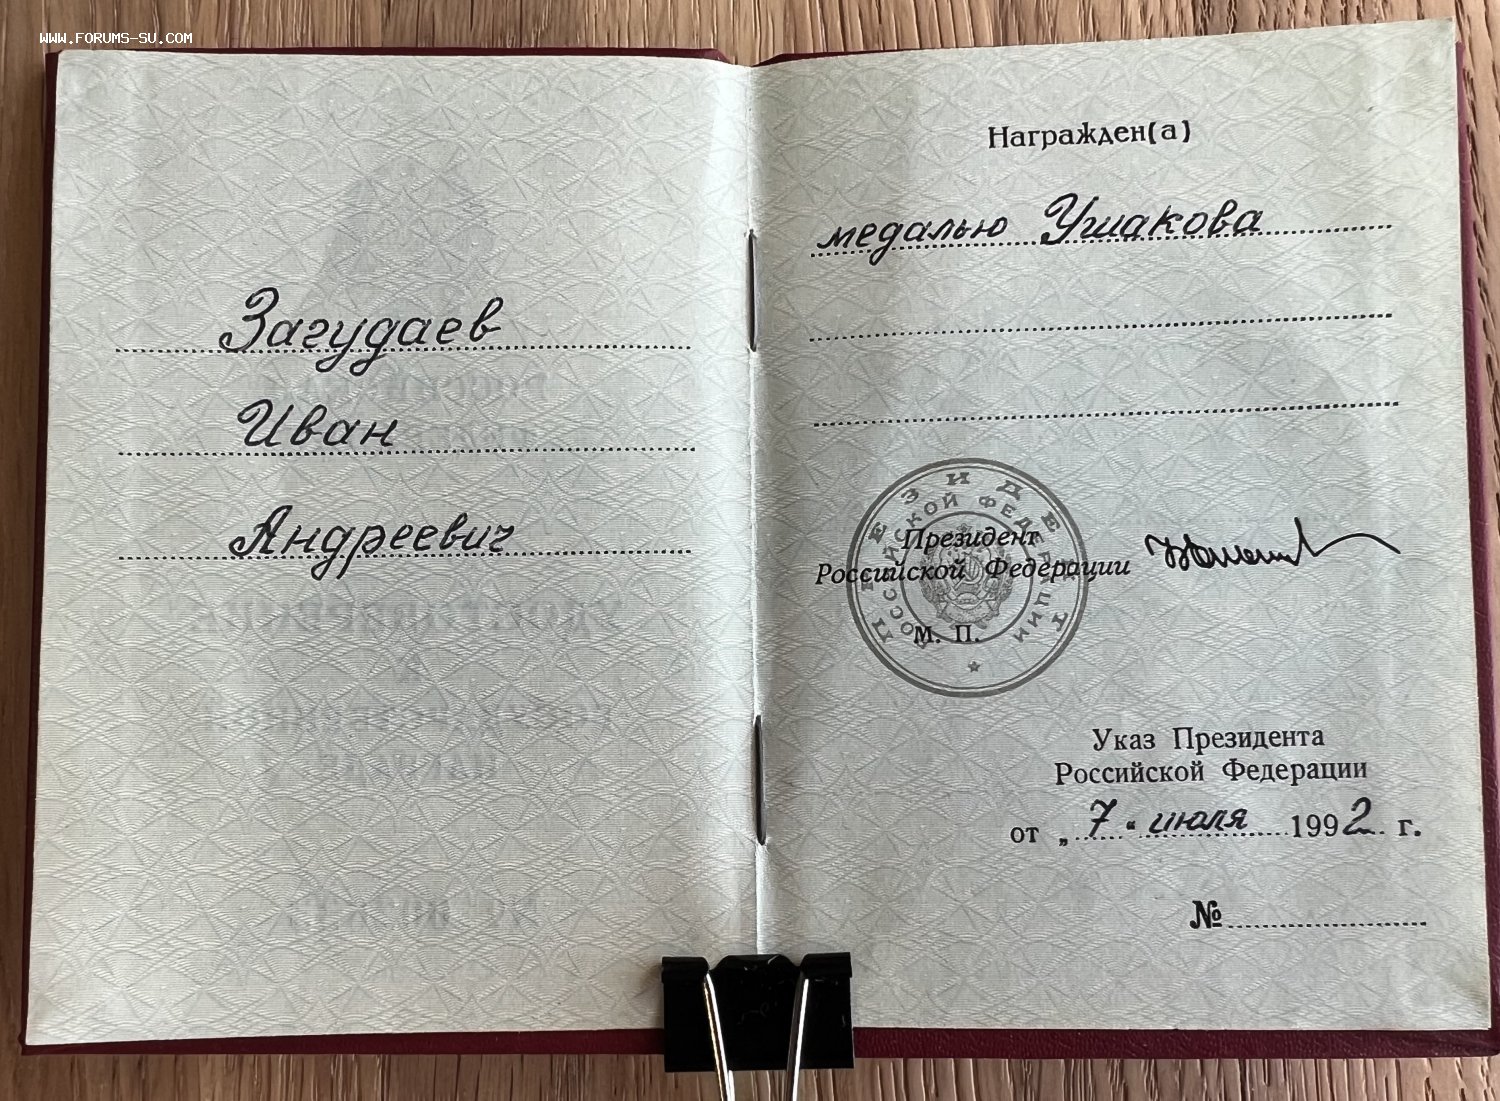 WWW.FORUMS-SU.COM
Загудаев
Иван
Андреевич
Награжден(а)
медалью Ушакова
ПРЕЗИДЕНТ
РОССИЙСКОЙ ФЕДЕРАЦИИ
Президент
Российской Федерации
М. П.
Указ Президента
Российской Федерации
от „ 7 “ июля 1992 г.
№